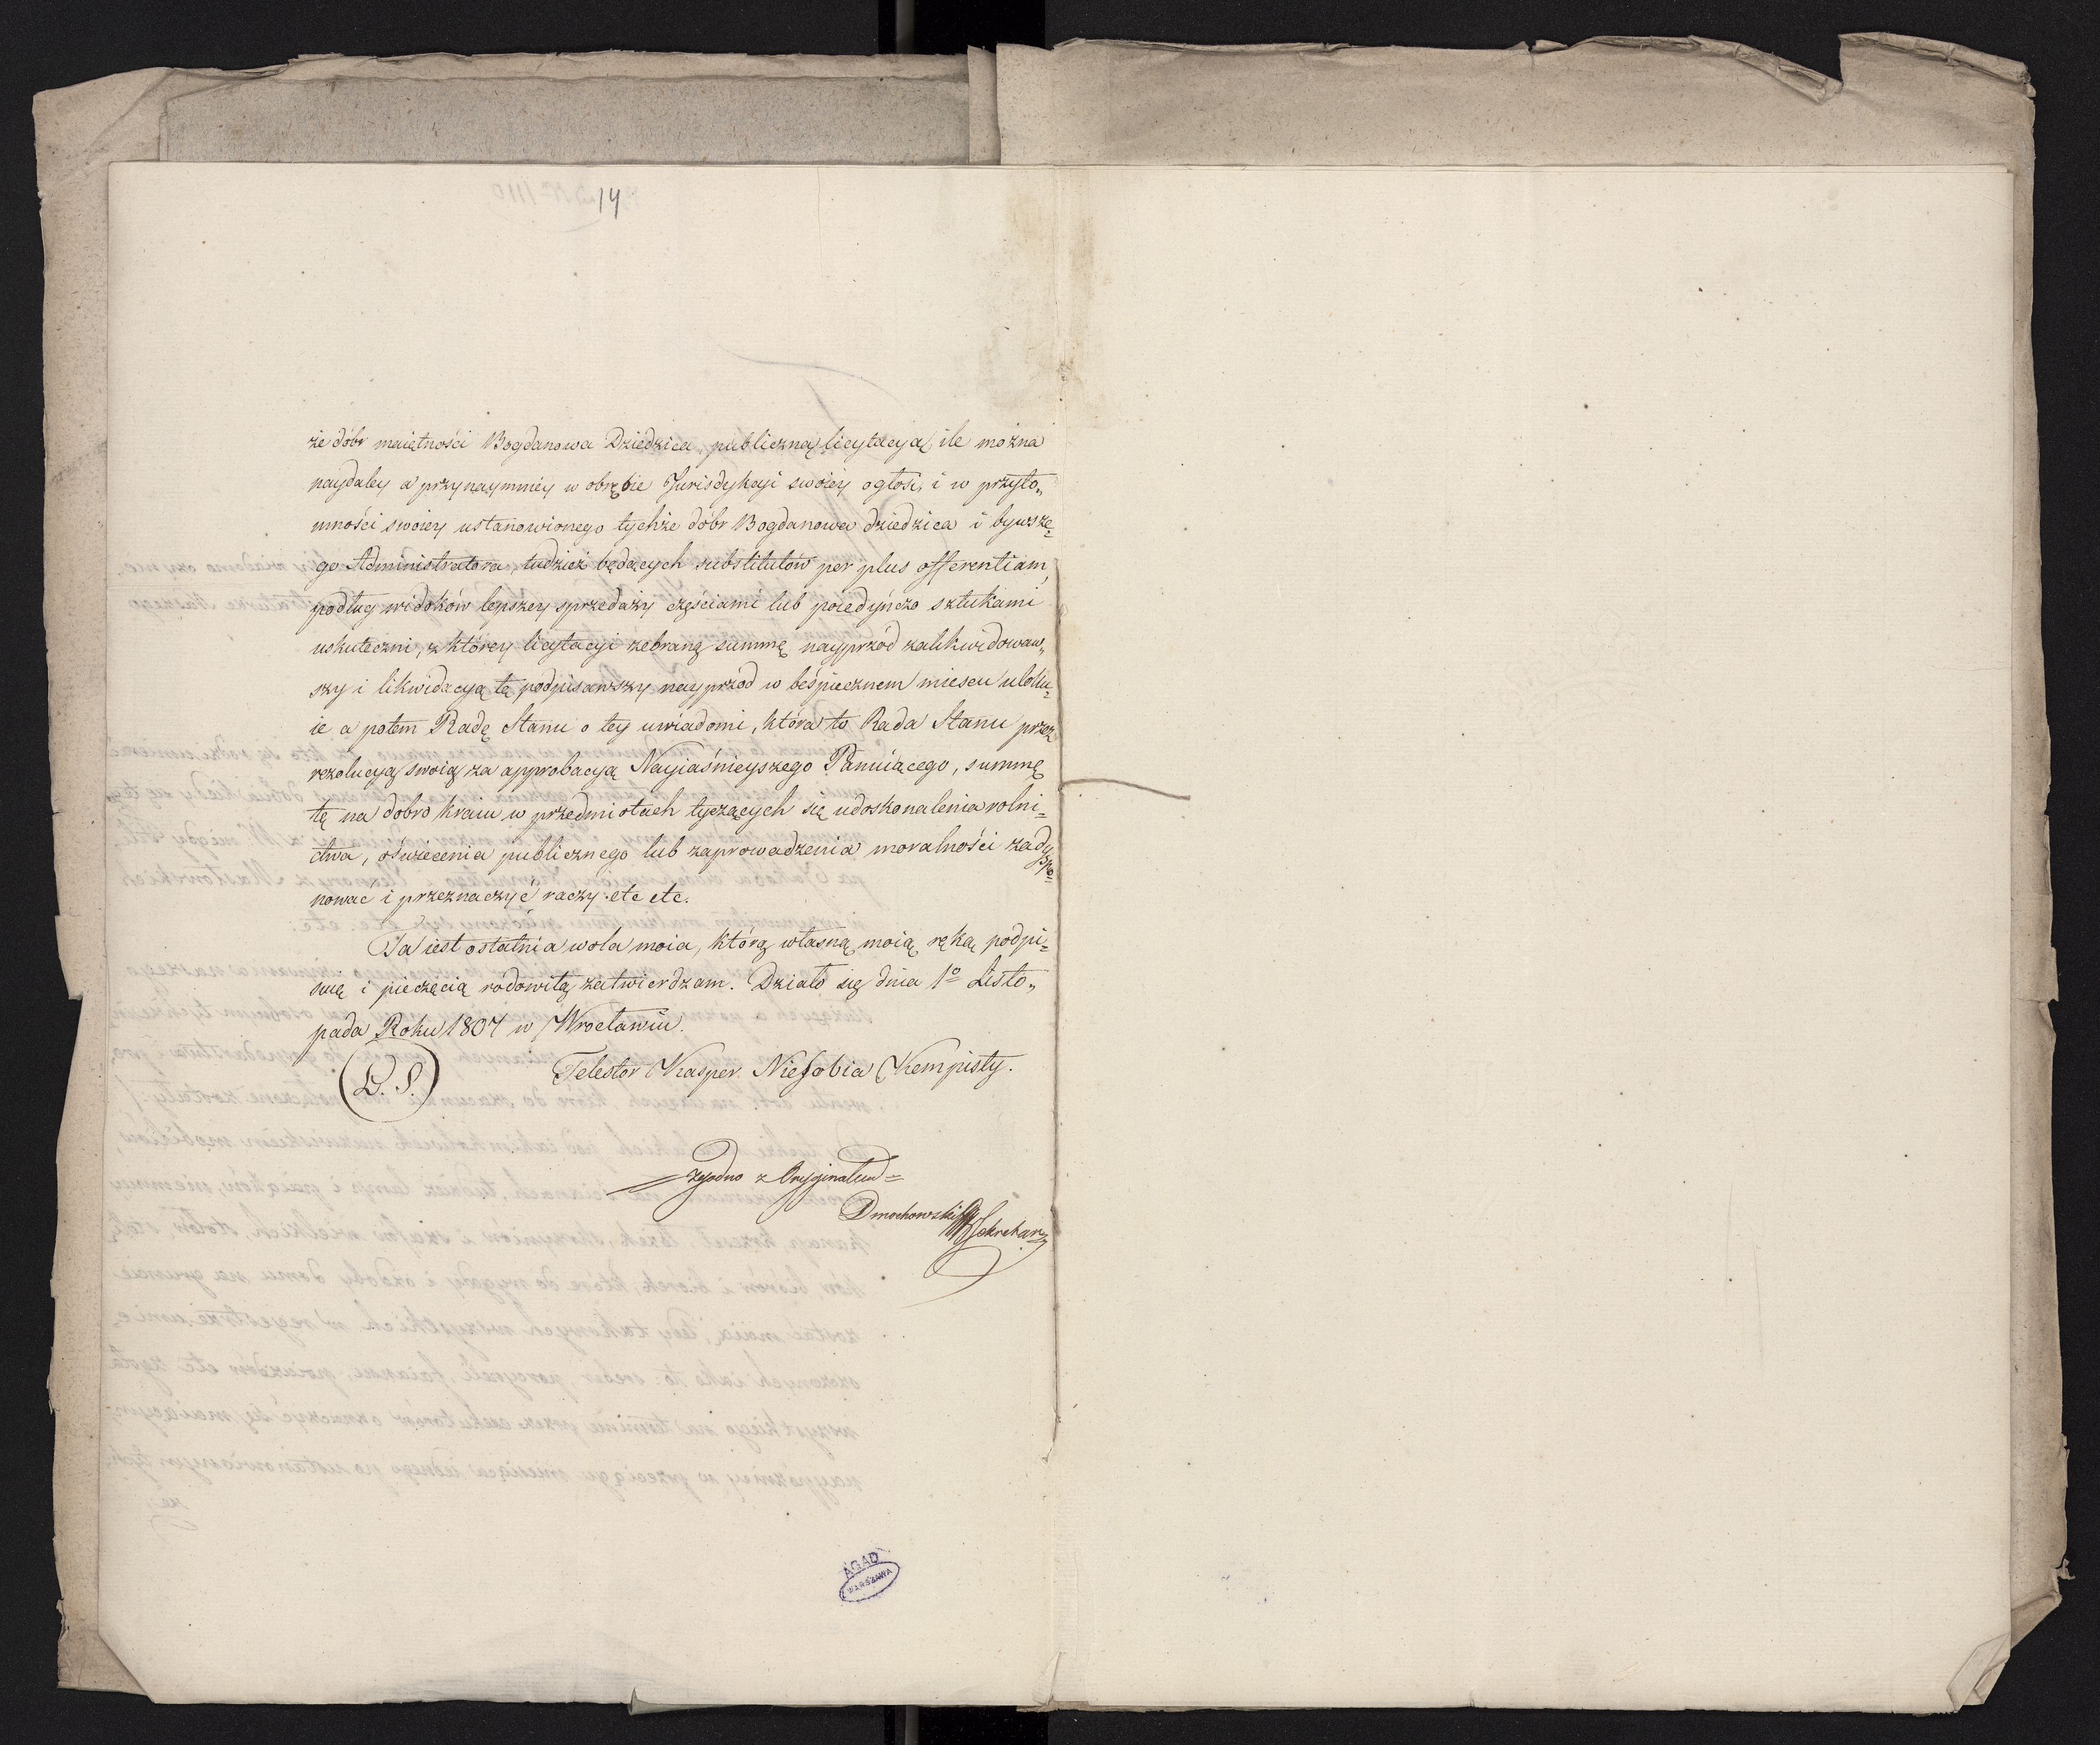 14
że dóbr maiętności Bogdanowa Dziedzica, publiczną licytacyą ile można
naydaley a przynaymniey w obrębie Jurisdykcyi swoiey ogłosi, i w przyto„
mności swoiey ustanowionego tychże dóbr Bogdanowa dziedzica i bywsze=
go Administratora, tudzież będących substitutów per plus offerentiam,
podług widoków lepszey sprzedaży częściami lub poiedyńczo sztukami
uskuteczni, z którey licytacyi zebraną summę nayprzód zalikwidowaw„
szy i likwidacyą tę podpisawszy nayprzód w beśpiecznem miescu uloku=
ie a potem Radę Stanu o tey uwiadomi, która to Rada Stanu przez
rezolucyą swoią za approbacyą Nayiaśnieyszego Panuiącego, summę
tę na dobro kraiu w przedmiotach tyczących się udoskonalenia rolni=
ctwa, oświecenia publicznego lub zaprowadzenia moralności zadyspo=
nować i przeznaczyć raczy. etc etc.
Ta iest ostatnia wola moia, którą własną moią ręką podpi=
suię i pieczęcią rodowitą zatwierdzam. Działo się dnia 1º Listo„
pada Roku 1807 w Wrocławiu.
(L. S.) Testator Kasper Niesobia Kempisty.
Zgodno z Oryginałem =
Dmochowski Sekretarz
AGAD
WARSZAWA